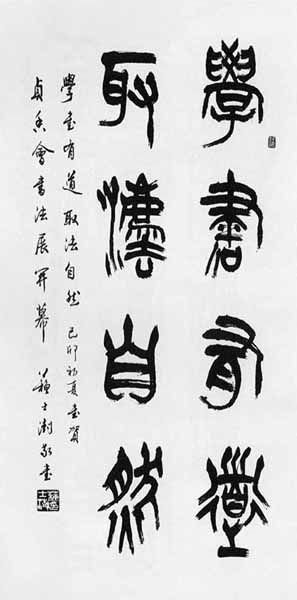 學書有道
取灋自然
學書有道 取法自然 己卯初夏書賀
貞香會書法展開幕 蘇士澍敬書